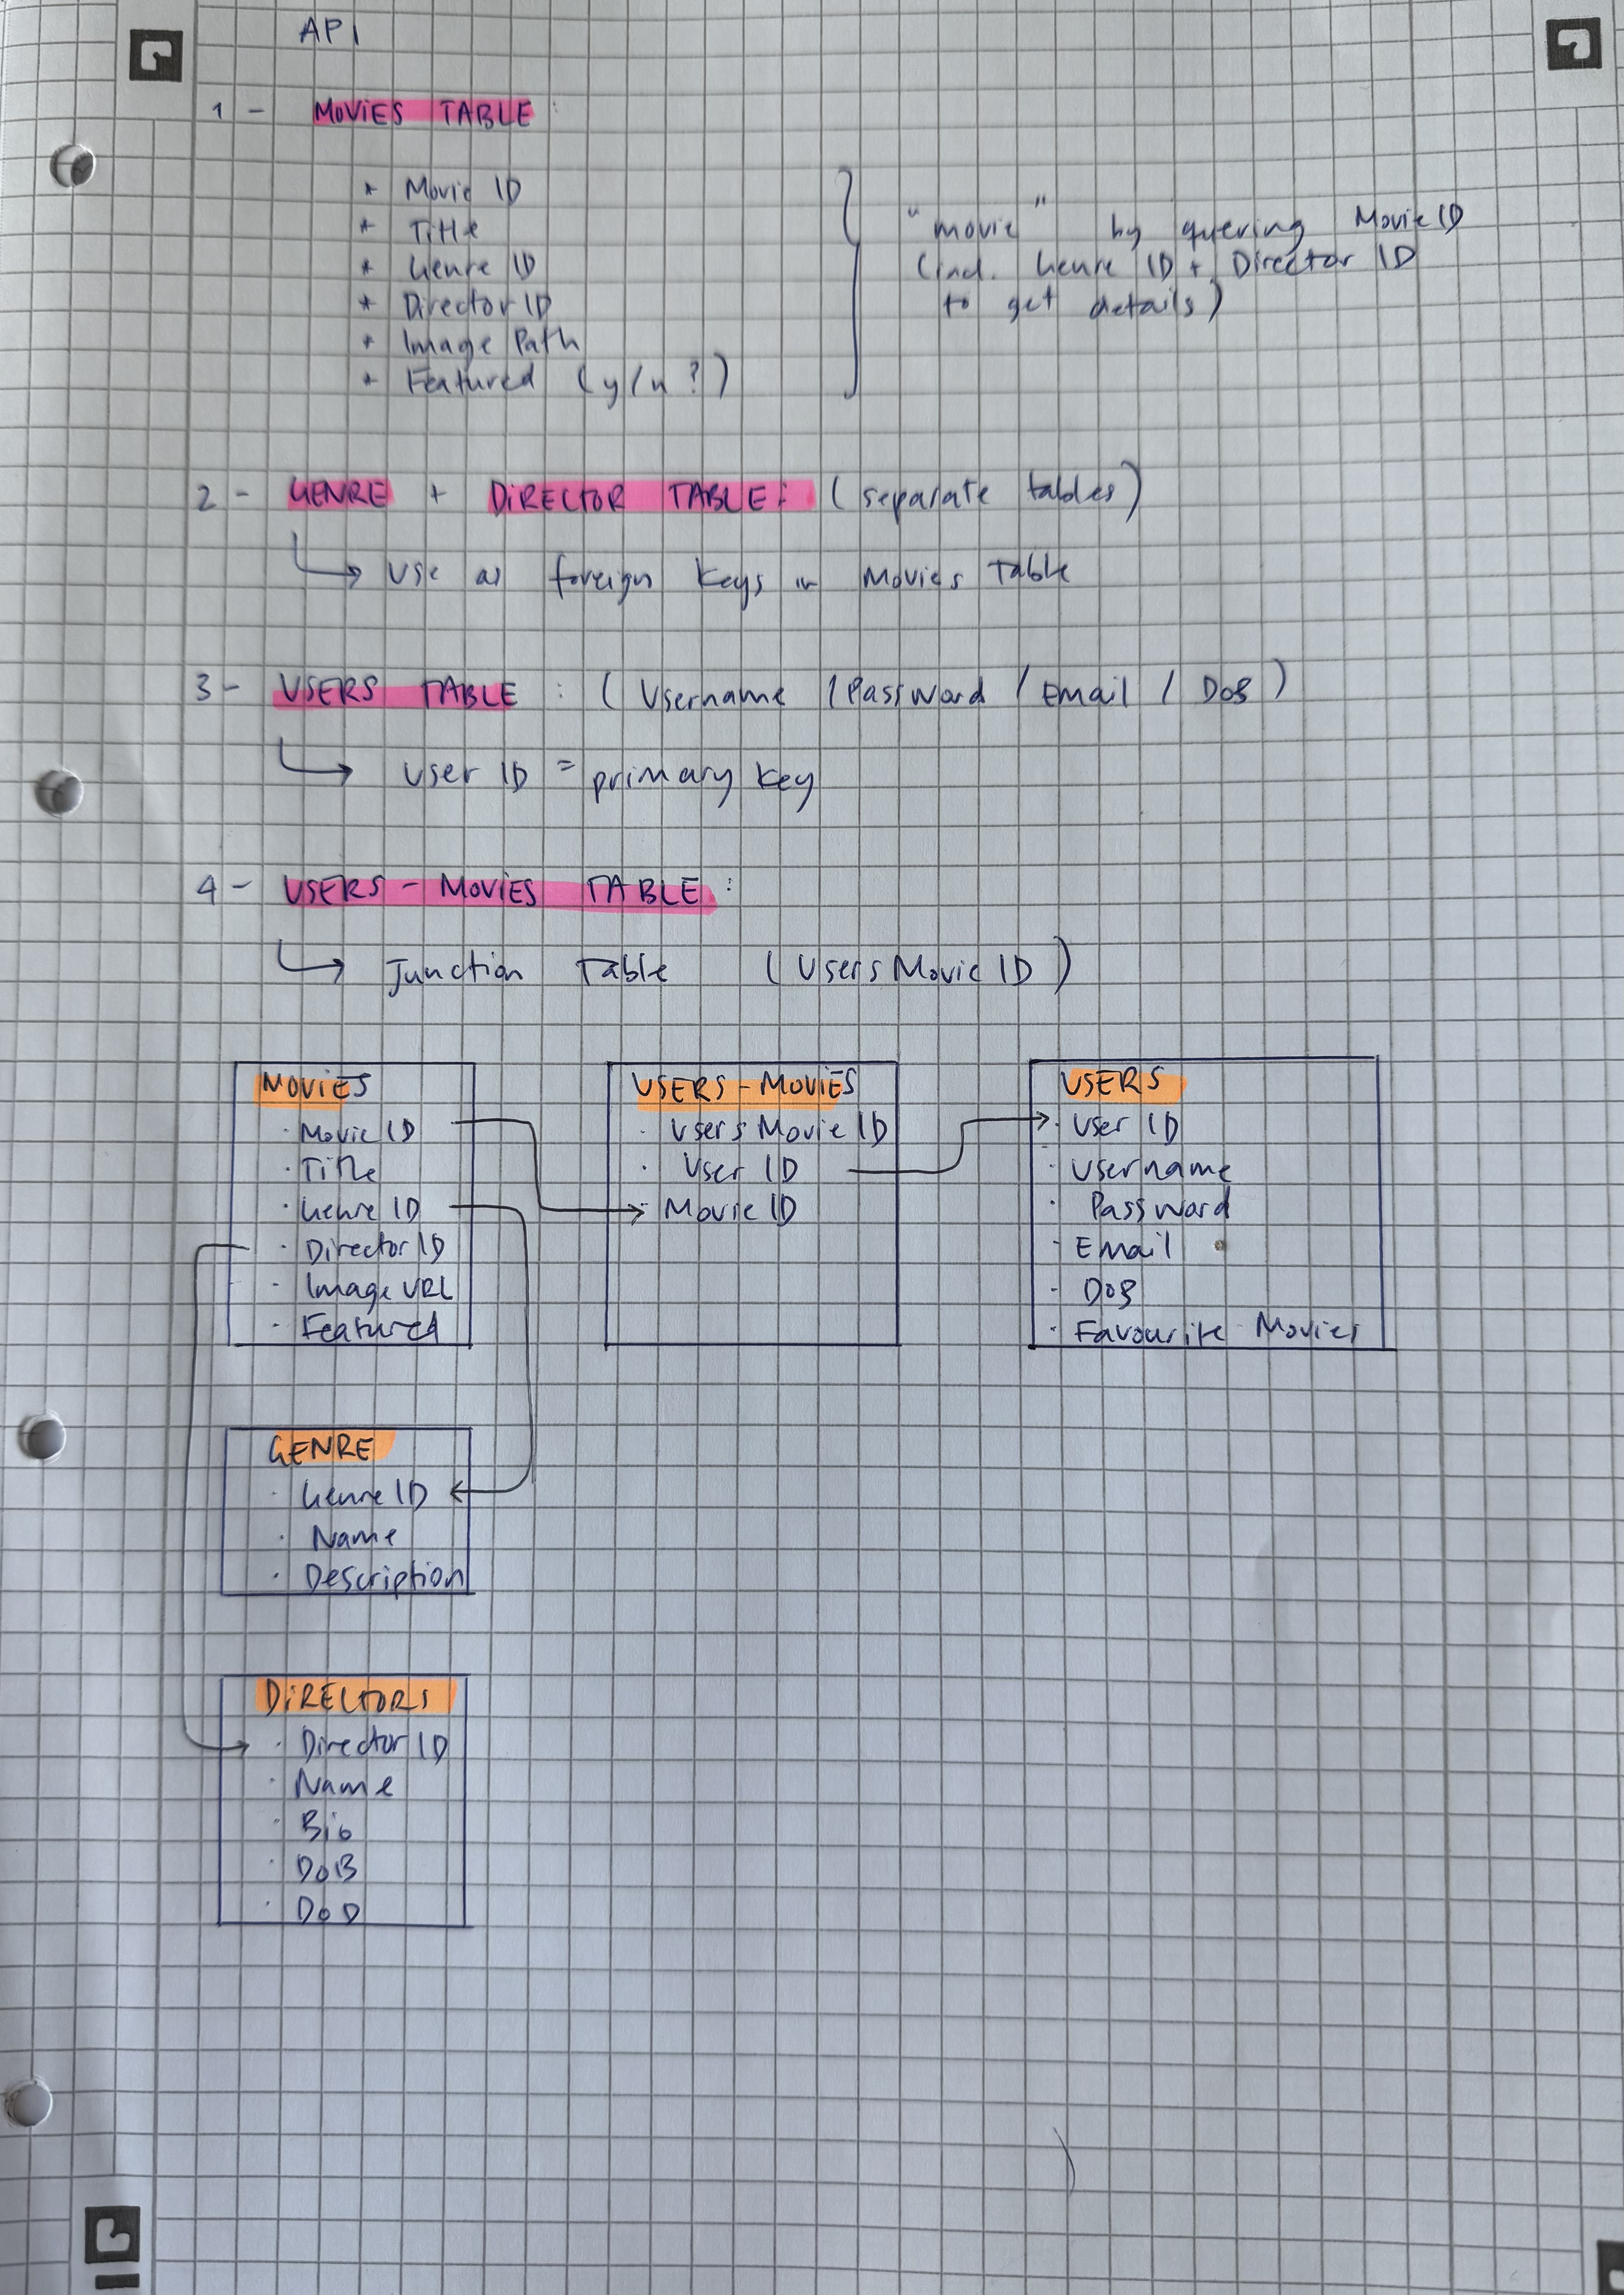 API
1 - MOVIES TABLE :
* Movie ID
* Title
* Genre ID
* Director ID
* Image Path
* Featured (y/n?)
"movie" by quering Movie ID
(incl. Genre ID + Director ID
to get details)
2 - GENRE + DIRECTOR TABLE: (separate tables)
↳ Use as foreign keys in Movies Table
3 - USERS TABLE : (Username / Password / Email / DoB)
↳ User ID = primary key
4 - USERS - MOVIES TABLE :
↳ Junction Table (UsersMovie ID)
MOVIES
· Movie ID
· Title
· Genre ID
· Director ID
· Image URL
· Featured
USERS - MOVIES
· UsersMovie ID
· User ID
· Movie ID
USERS
· User ID
· Username
· Password
· Email
· DoB
· Favourite Movies
GENRE
· Genre ID
· Name
· Description
DIRECTORS
· Director ID
· Name
· Bio
· DoB
· DoD